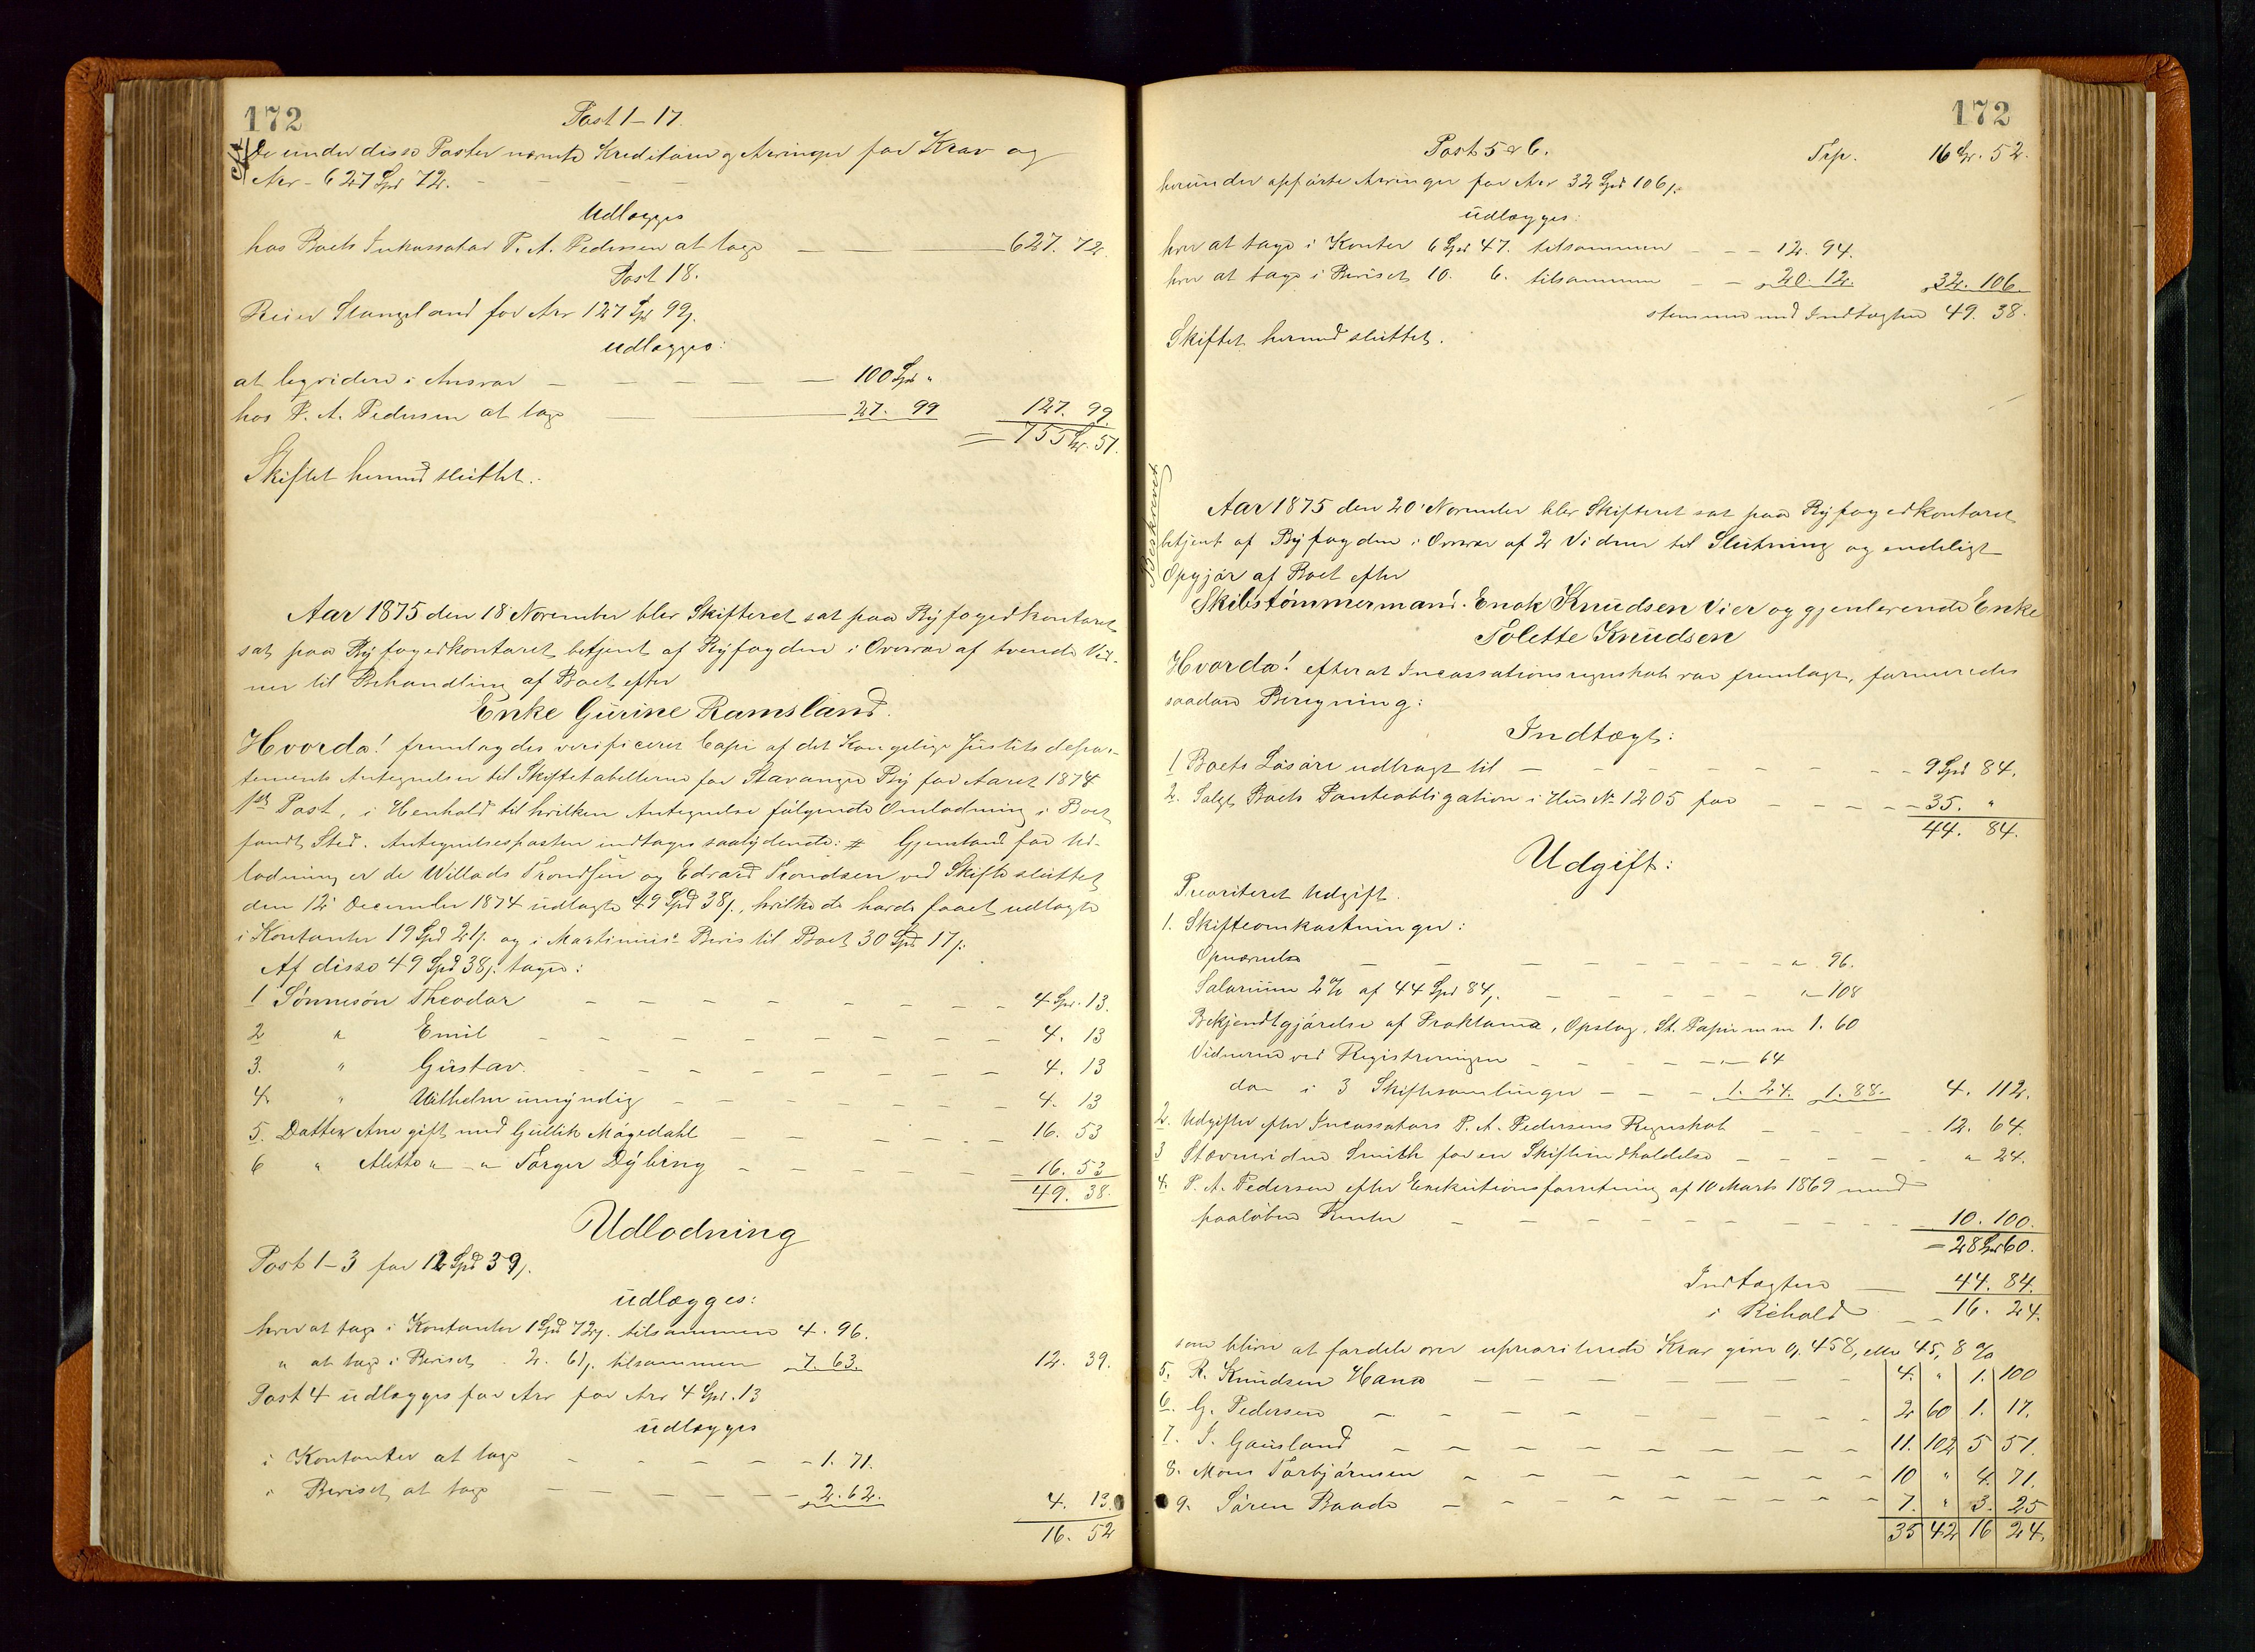 172
Post 1-17.
De under disse Poster nævnte Kreditorer og Arvinger for Krav og
Arv - 627 Spd 72. - - - -
Udlægges
hos Boets Inkassator P. A. Pedersen at tage — — — 627. 72.
Post 18.
Reier Stangeland for Arv 127 Spd 99 s.
udlægges:
at liqvidere i Ansvar — — — — — — 100 Spd "
hos P. A. Pedersen at tage — — 27. 99 127. 99.
= 755 Spd. 51.
Skiftet hermed sluttet.
Aar 1875 den 18 November blev Skifteret sat paa Byfogedkontoret
sat paa Byfogedkontoret betjent af Byfogden i Overvær af tvende Vid-
ner til Behandling af Boet efter
Enke Gurine Ramsland.
Hvorda! fremlagdes verificeret Copi af det Kongelige Justits depar-
tements Antegnelser til Skiftetabellerne for Stavanger By for Aaret 1874
1ste Post, i Henhold til hvilken Antegnelse følgende Omlodning i Boet
fandt Sted. Antegnelsesposten indtages saalydende: # Gjenstand for Ud-
lodning er de Willads Trondsen og Edvard Trondsen ved Skifte sluttet
den 12 December 1874 udlagte 49 Spd 38 s., hvilke de havde faaet udlagte
i Kontanter 19 Spd 21 s. og i Martinius's Bevis til Boet 30 Spd 17 s.
Af disse 49 Spd 38 s. tages:
1 Sønnesøn Theodor — — — — — — — 4 Spd. 13.
2 " Emil — — — — — — — 4. 13
3. " Gustav. — — — — — — — 4. 13
4. " Wilhelm umyndig — — — — — — 4. 13
5. Datter Ane gift med Gullik Mågedahl — — — — 16. 53
6 " Alette " — " Torger Dybing — — — — 16. 53
49. 38.
Udlodning
Post 1-3 for 12 Spd 39 s.
udlægges:
hver at tage i Kontanter 1 Spd 72 s. tilsammen 4. 96.
" at tage i Beviset . 2. 61 s. tilsammen 7. 63. 12. 39.
Post 4 udlægges for Arv for Arv 4 Spd. 13
udlægges
i Kontanter at tage — — — — — 1. 71.
i Beviset at tage — — — — — 2. 62. 4. 13.
16. 52
172
Post 5 & 6. Trp. 16 Spd. 52.
herunder opførte Arvinger for Arv 32 Spd 106 s.
udlægges:
hver at tage i Konter 6 Spd 47. tilsammen — — 12. 94.
hver at tage i Beviset 10. 6. tilsammen — — 20. 12. 32. 106.
stemmer med Indtægten 49. 38.
Skiftet hermed sluttet.
Beskrevet
Aar 1875 den 20 November blev Skifteret sat paa Byfogedkontoret
betjent af Byfogden i Overvær af 2 Vidner til Slutning og endeligt
Opgjør af Boet efter
Skibstømmermand. Enok Knudsen Vier og gjenlevende Enke
Tolette Knudsen
Hvorda! efterat Incassationsregnskab var fremlagt, formeredes
saadan Beregning:
Indtægt:
1 Boets Løsøre udbragt til — — — — — — — 9 Spd 84.
2. Solgt Boets Panteobligation i Hus No 1205 for — — — — 35. "
44. 84.
Udgift:
Prioriteret Udgift.
1. Skifteomkostninger:
Opnævnelse — — — — — — — " 96.
Salarium 2% af 44 Spd 84 s. — — — — — " 108
Bekjendtgjørelse af Proklama, Opslag, St. Papir m m 1. 60
Vidnerne ved Registreringen — — — — " 64
do i 3 Skiftesamlinger — — — 1. 24. 1. 88. 4. 112.
2. Udgifter efter Incassators P. A. Pedersens Regnskab — — — — 12. 64.
3 Stævnevidne Smith for en Skifteindkaldelse — — — — — " 24.
4. P. A. Pedersen efter Exekutionsforretning af 10 Marts 1869 med
paaløbne Renter — — — — — — — — 10. 100.
= 28 Spd 60.
Indtægten — 44. 84.
i Behold — 16. 24.
som bliver at fordele over uprioriterede Krav giver 0,458, eller 45,8 %
5. R. Knudsen Hana — — — — — — 4. " 1. 100
6. G. Pedersen — — — — — — 2 60 1. 17.
7. T. Gausland — — — — — — 11. 102 5 51.
8. Mons Torbjørnsen — — — — — — 10 " 4. 71.
9. Søren Baade — — — — — — 7. " 3. 25
35 42 16 24.